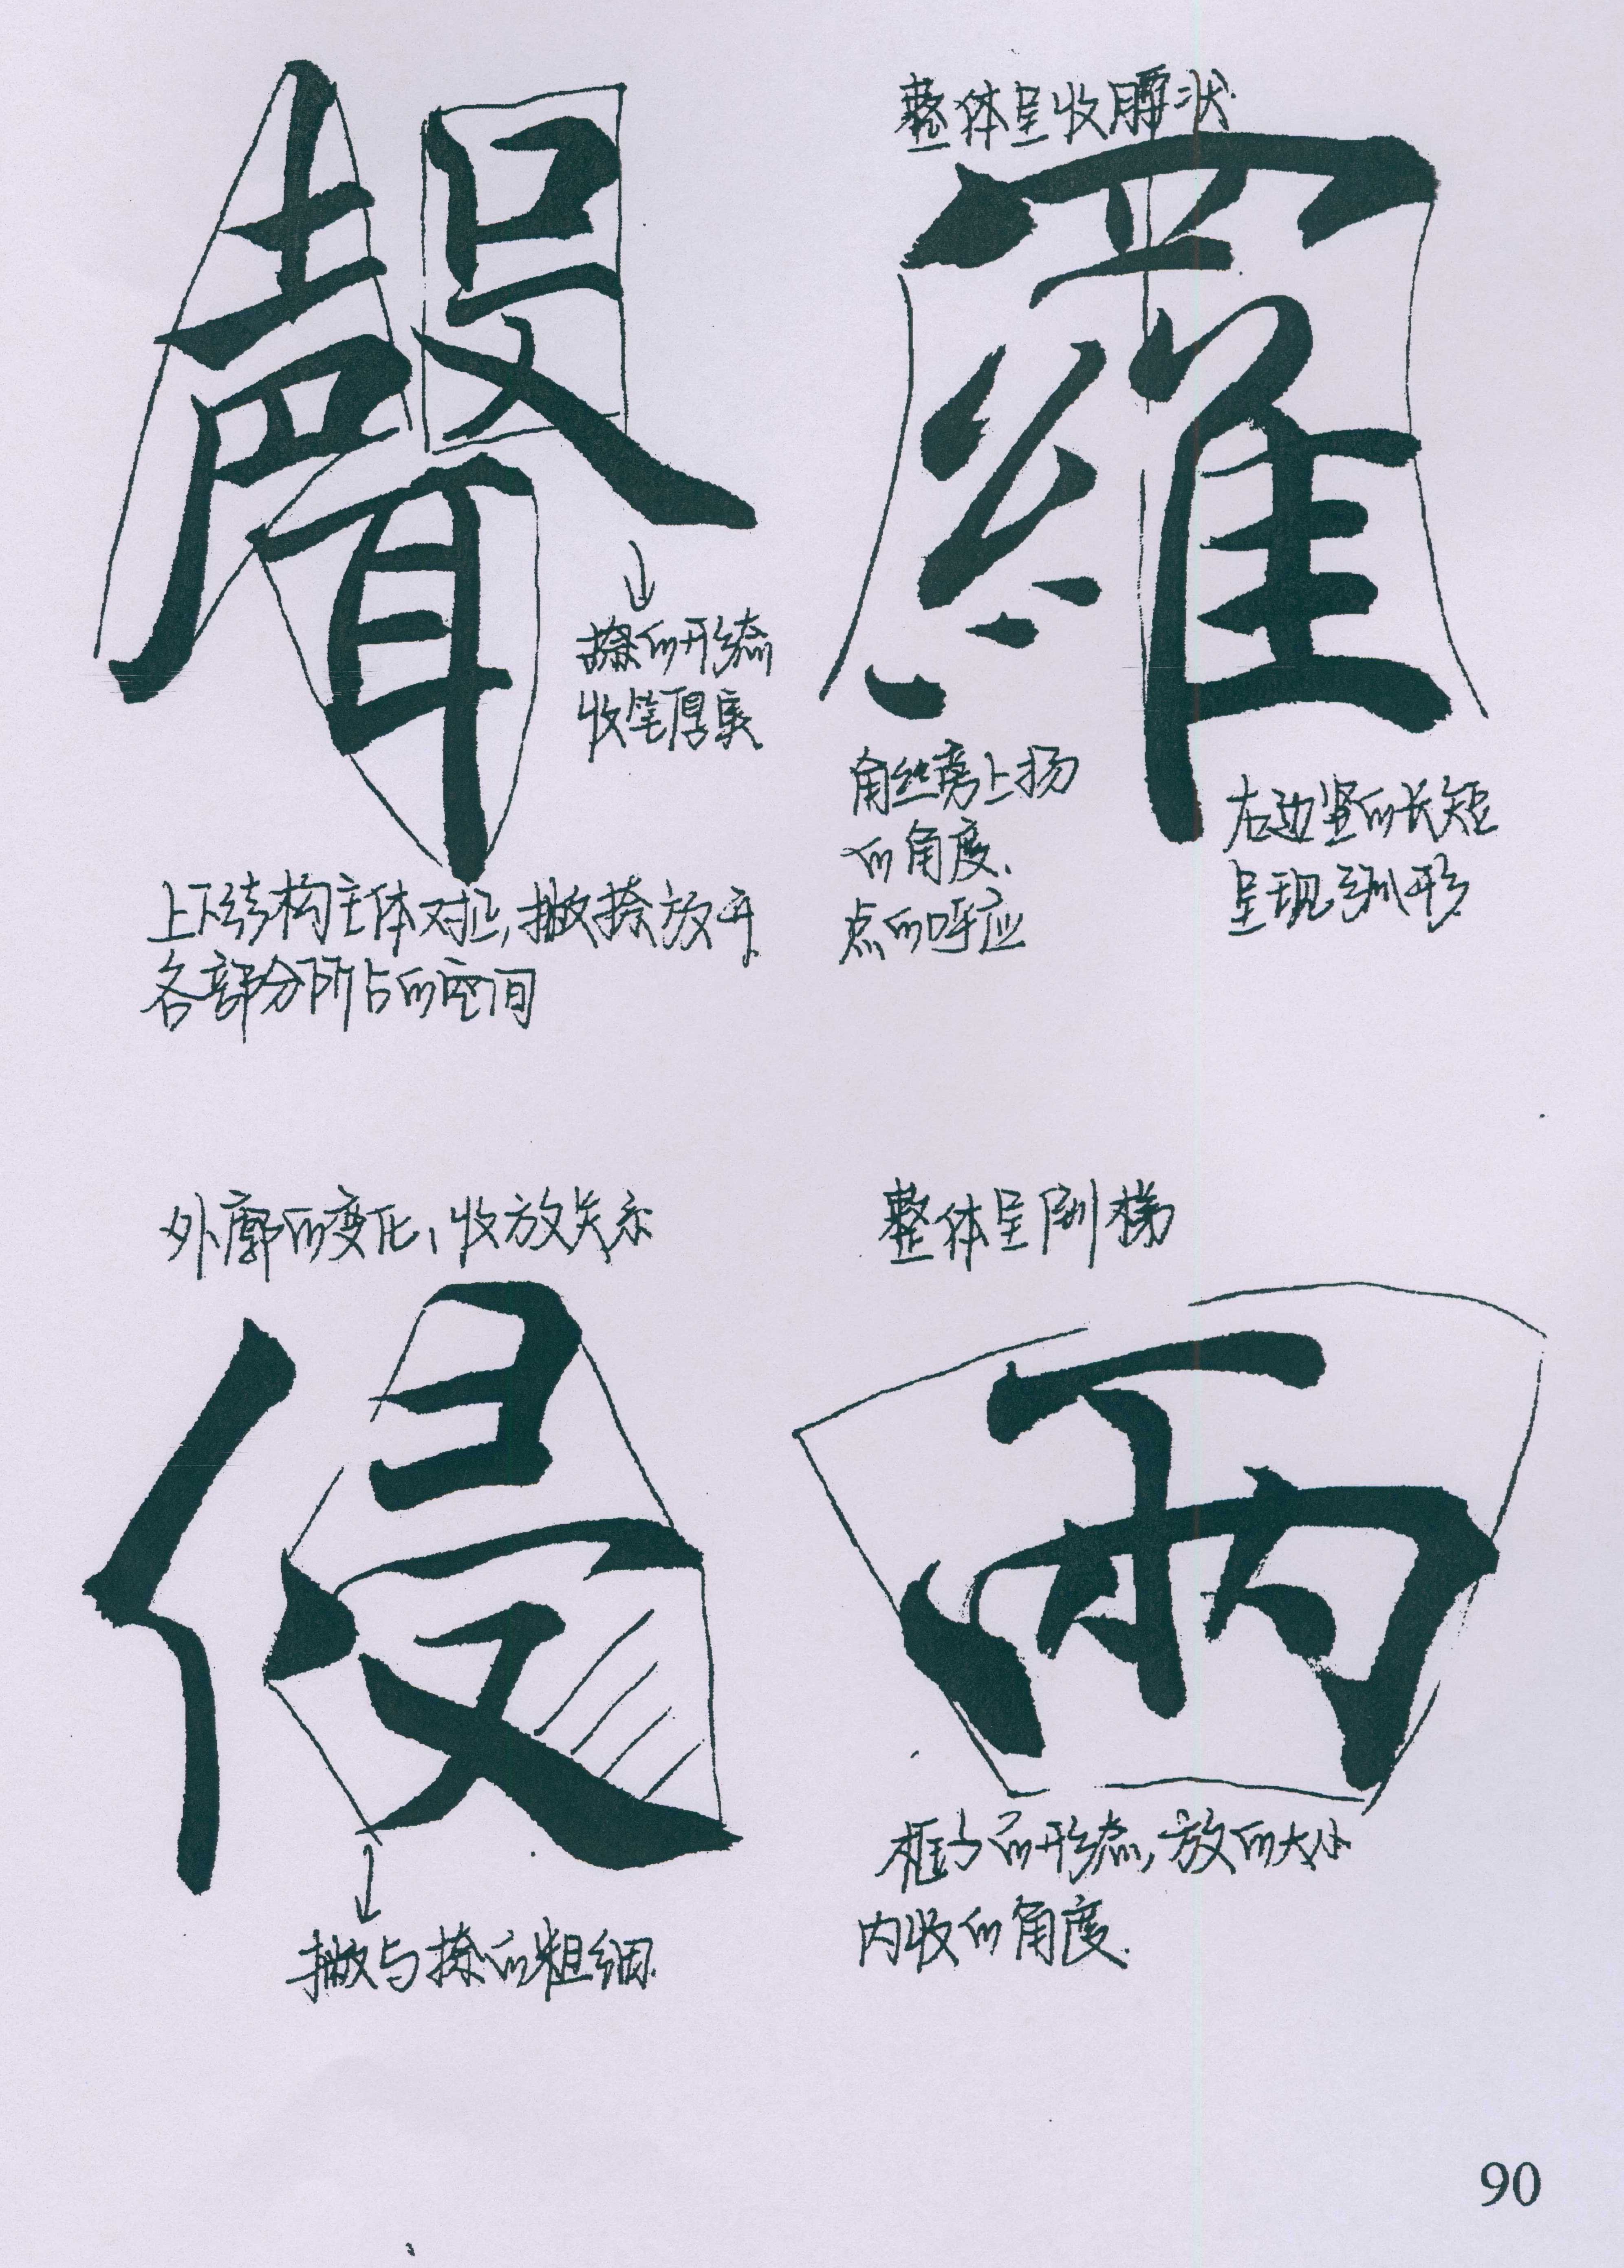 聲
捺的形态
收笔厚度
上下结构主体对正,撇捺放开
各部分所占的空间
整体呈收腰状
羅
角丝旁上扬
的角度.
点的呼应
右边竖的长短
呈现弧形
外廓的变化,收放关系
侵
撇与捺的粗细.
整体呈倒梯
雨
框子的形态,放的大小
内收的角度.
90